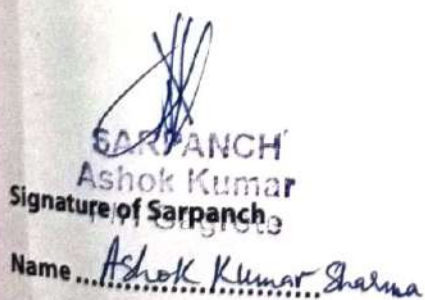 SARPANCH
Ashok Kumar
Signature of Sarpanch
Name ... Ashok Kumar Sharma